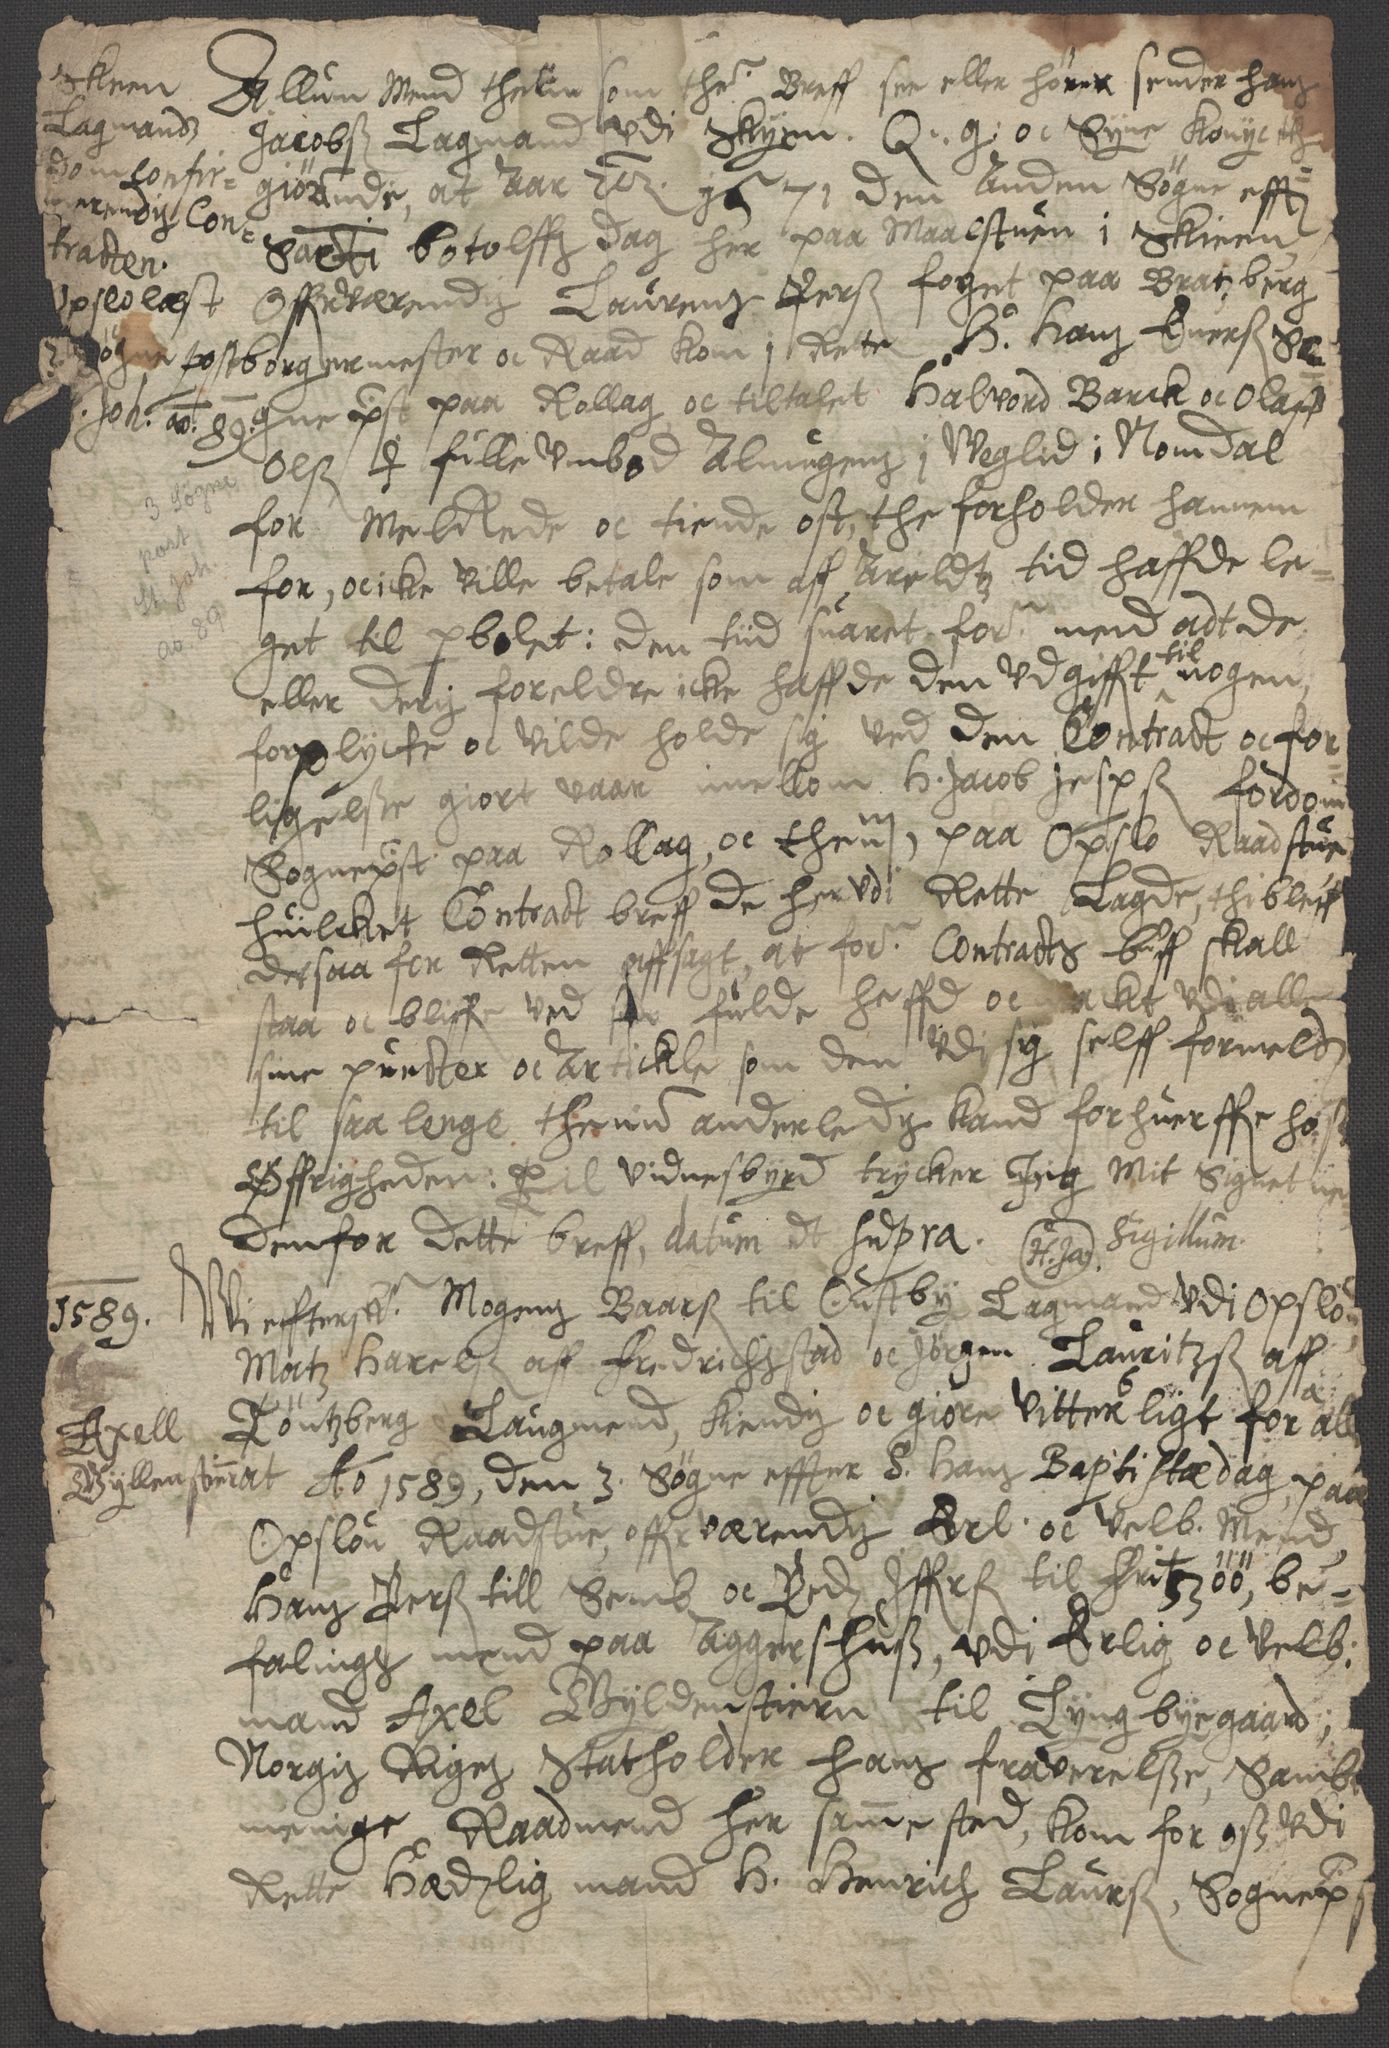 Skeen
Lagmandz
Dom confir=
merendiz Con=
tracten.
Opslo læst
3 Søgne post
S. Joh. ao. 89.
3 Søgne
post
St. Joh.
ao. 89
Allum Mend thenn som thr. Breff see eller hører sender hanz
Jacobß Lagmand vdi Skyen. Q. g. oc Syne konyctth
giörandis, at Aar etc. 71 den Anden Søgne efft
Sancti botolffz dag her paa Maalstuen i Skieen
Offuerværendiz Laurenz Perß foget paa Bratzberg
borgermester oc Raad kom j Rette H. hanz Euerß So=
gne pst paa Rollag, oc tiltalet Halvord Barck oc Olaff
Olß fulle vmbod Almugenz j Veglid i Nomdal
for Mel Rede oc tiende ost, the forholder hannem
for, oc icke ville betale som aff Areldtz tid haffde le=
get til pbolet: den tiid suaret forne mend adt de
eller deriz foreldre icke haffde den vdgifft til nogen
forplycte oc vilde holde sig ved den Contract oc for=
ligelße giort vaar imellom H. Jacob Jespß fordom
Sognepst paa Rollag, oc thenn, paa Opslo Raadstue
huilcket Contract breff de her vdi Rette Lagde, thi bleff
der saa for Retten affsagt, at forne Contractz breff skall
staa oc bliffe ved sin fulde heffd oc mackt vdi alle
sine puncter oc Artickle som den vdi sig selff formeld
til saa lenge thenn anderlediz kand forhuerffe hoß
Øffrigheden: Til vidnesbyrd trycker Jeg Mit Signet ne=
denfor dette breff, datum ut supra. H. Ja. Sigillum.
1589.
Wi effterskr. Mogenz Baarß til Oustby Lagmand vdi Opslou,
Matz harelß aff Fredrichstad oc Jörgen Lauritzß aff
Töntzberg Laugmend, kiendiz oc giøre vitterligt for alle
Axell
Gyllenstierat
Ao 1589, den 3. Søgne effter S. Hanz Baptistæ dag, paa
Opslou Raadstue, offuerværendiz Erl. oc Velb. Mend,
Hanz Perß till Semb oc Peder Iffrß til Fritzöö, be=
falingz mend paa Aggershuß, vdi Erlig oc Velb:
mand Axel Gyldenstiern til Lyngbyegaard,
Norgiz Rigez Statholder hanz fraverelße, Sambt
menige Raadmend her samme sted, kom for oß vdi
Rette Hæderlig mand H. Henrich Laurß, Sognepst